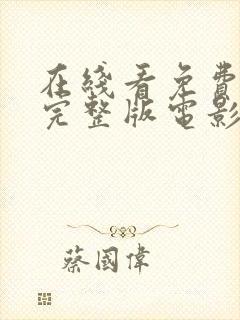 在綫看免費
完整版電影
蔡國偉